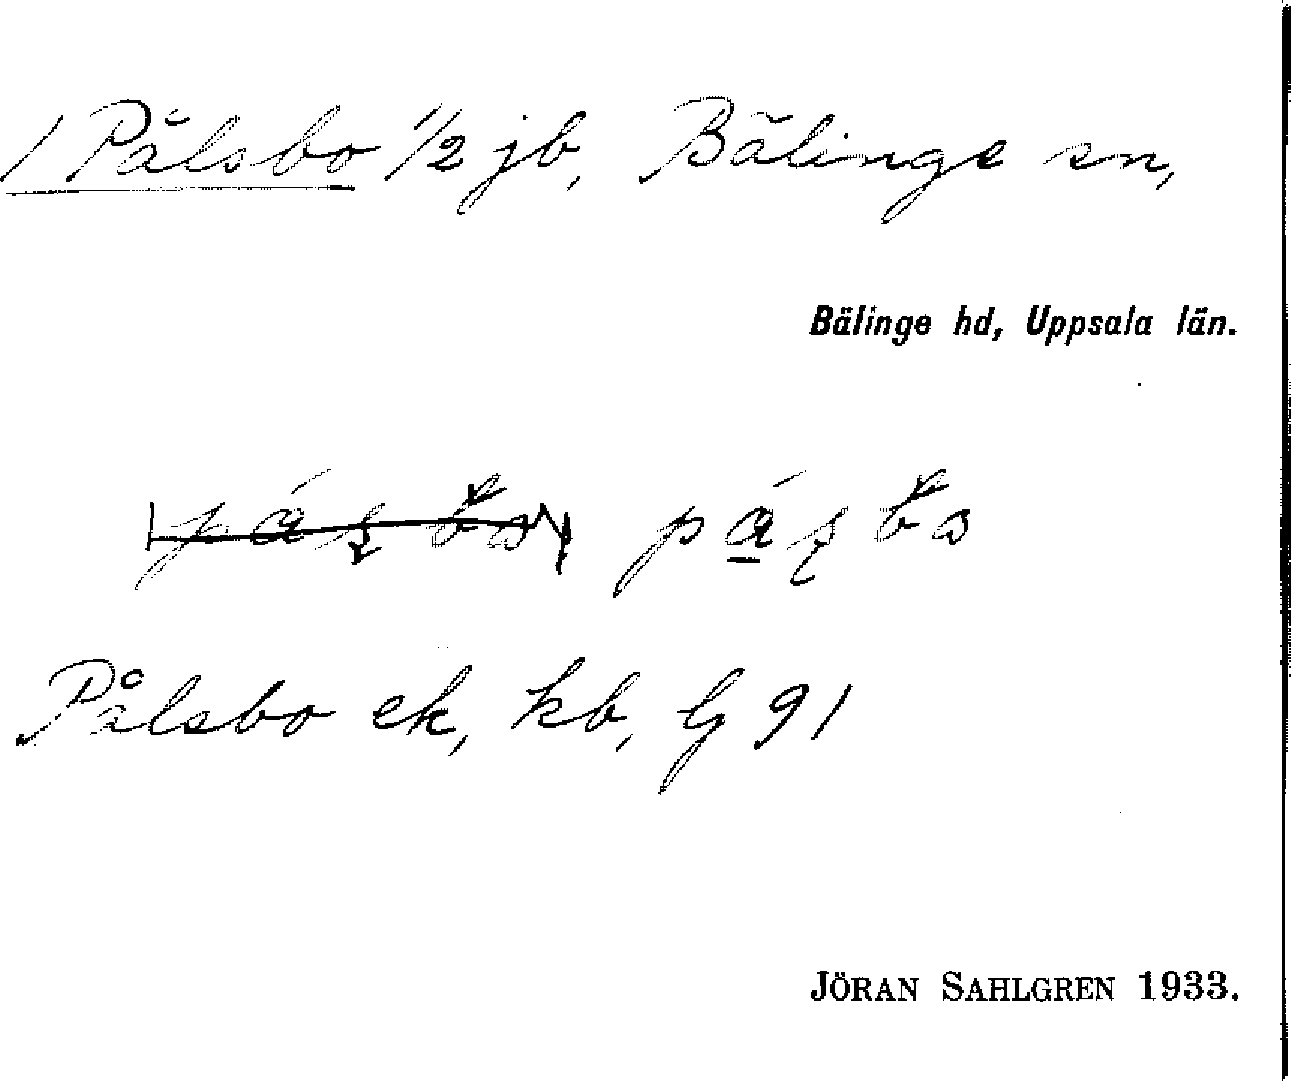 1 Pålsbo 1/2 jb, Bälinge sn,
Bälinge hd, Uppsala län.
Pålsbo ek, kb, lj 91
JÖRAN SAHLGREN 1933.